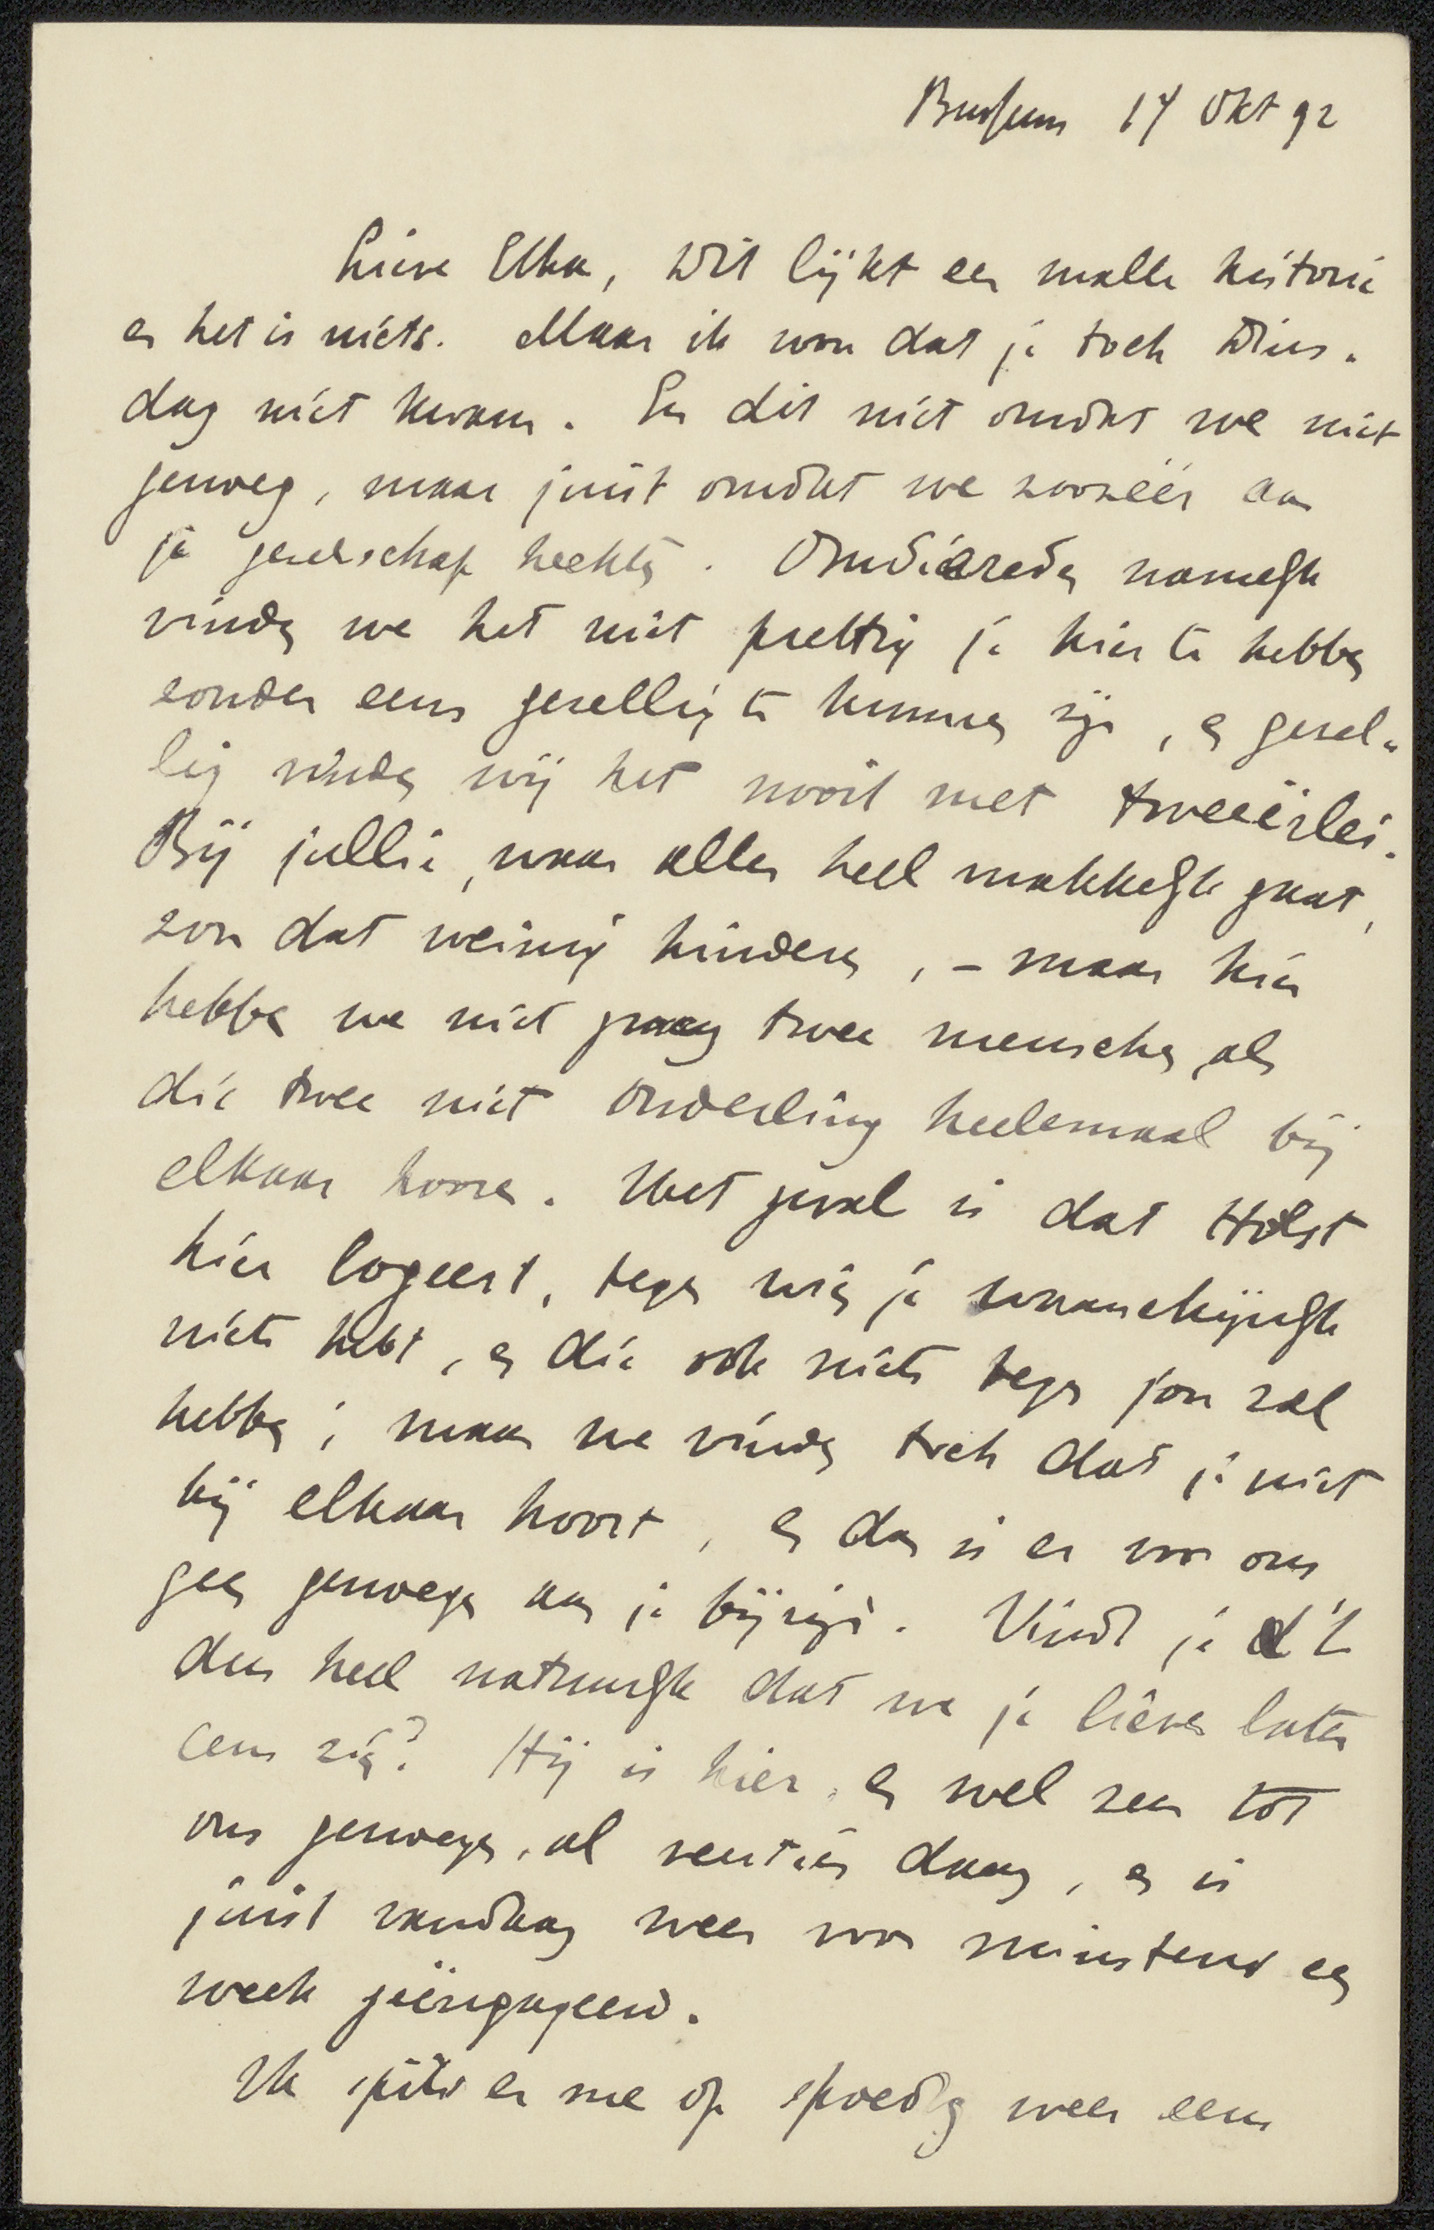 Bussum 14 Okt 92
Lieve Elka, Dit lijkt een malle historie
en het is niets. Maar ik wou dat je toch Dins-
dag niet kwam. En dit niet omdat we niet
genoeg, maar juist omdat we zoozéér aan
je gezelschap hechten. Om die reden namelijk
vinden we het niet prettig je hier te hebben
zonder eens gezellig te kunnen zijn, en gezel-
lig vinden wij het nooit met tweeërlei.
Bij jullie, waar alles heel makkelijk gaat,
zou dat weinig hinderen, - maar hier
hebben we niet graag twee menschen, als
die twee niet onderling heelemaal bij
elkaar hooren. Het geval is dat Holst
hier logeert, tegen wien je waarschijnlijk
niets hebt, en die ook niets tegen jou zal
hebben; maar we vinden toch dat je niet
bij elkaar hoort, en dan is er voor ons
geen genoegen aan je bijzijn. Vindt je 't
dus heel natuurlijk dat we je liever later
eens zien? Hij is hier, en wel zeer tot
ons genoegen, al veertien dagen, en is
juist vandaag weer voor minstens een
week geëngageerd.
Ik spits er me op spoedig weer eens